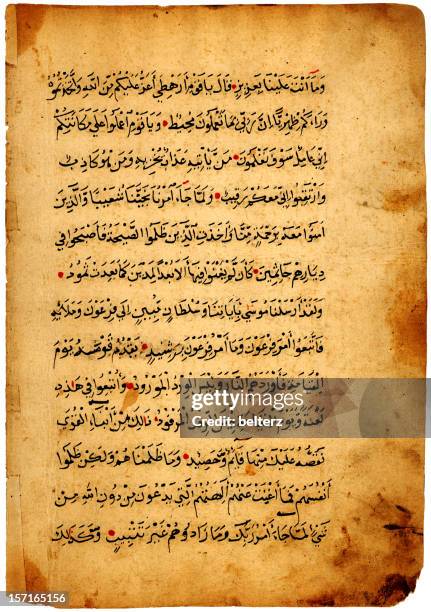 وَمَا أَنْتَ عَلَيْنَا بِعَزِيزٍ قَالَ يَاقَوْمِ أَرَهْطِي أَعَزُّ عَلَيْكُمْ مِنَ اللَّهِ وَاتَّخَذْتُمُوهُ
وَرَاءَكُمْ ظِهْرِيًّا إِنَّ رَبِّي بِمَا تَعْمَلُونَ مُحِيطٌ وَيَاقَوْمِ اعْمَلُوا عَلَى مَكَانَتِكُمْ
إِنِّي عَامِلٌ سَوْفَ تَعْلَمُونَ مَنْ يَأْتِيهِ عَذَابٌ يُخْزِيهِ وَمَنْ هُوَ كَاذِبٌ
وَارْتَقِبُوا إِنِّي مَعَكُمْ رَقِيبٌ وَلَمَّا جَاءَ أَمْرُنَا نَجَّيْنَا شُعَيْبًا وَالَّذِينَ
آمَنُوا مَعَهُ بِرَحْمَةٍ مِنَّا وَأَخَذَتِ الَّذِينَ ظَلَمُوا الصَّيْحَةُ فَأَصْبَحُوا فِي
دِيَارِهِمْ جَاثِمِينَ كَأَنْ لَمْ يَغْنَوْا فِيهَا أَلَا بُعْدًا لِمَدْيَنَ كَمَا بَعِدَتْ ثَمُودُ
وَلَقَدْ أَرْسَلْنَا مُوسَى بِآيَاتِنَا وَسُلْطَانٍ مُبِينٍ إِلَى فِرْعَوْنَ وَمَلَائِهِ
فَاتَّبَعُوا أَمْرَ فِرْعَوْنَ وَمَا أَمْرُ فِرْعَوْنَ بِرَشِيدٍ يَقْدُمُ قَوْمَهُ يَوْمَ
الْقِيَامَةِ فَأَوْرَدَهُمُ النَّارَ وَبِئْسَ الْوِرْدُ الْمَوْرُودُ وَأُتْبِعُوا فِي هَذِهِ
لَعْنَةً وَيَوْمَ الْمَرْفُودُ ذَلِكَ مِنْ أَنْبَاءِ الْقُرَى
نَقُصُّهُ عَلَيْكَ مِنْهَا قَائِمٌ وَحَصِيدٌ وَمَا ظَلَمْنَاهُمْ وَلَكِنْ ظَلَمُوا
أَنْفُسَهُمْ فَمَا أَغْنَتْ عَنْهُمْ آلِهَتُهُمُ الَّتِي يَدْعُونَ مِنْ دُونِ اللَّهِ مِنْ
شَيْءٍ لَمَّا جَاءَ أَمْرُ رَبِّكَ وَمَا زَادُوهُمْ غَيْرَ تَتْبِيبٍ وَكَذَلِكَ
gettyimages
Credit: belterz
157165156